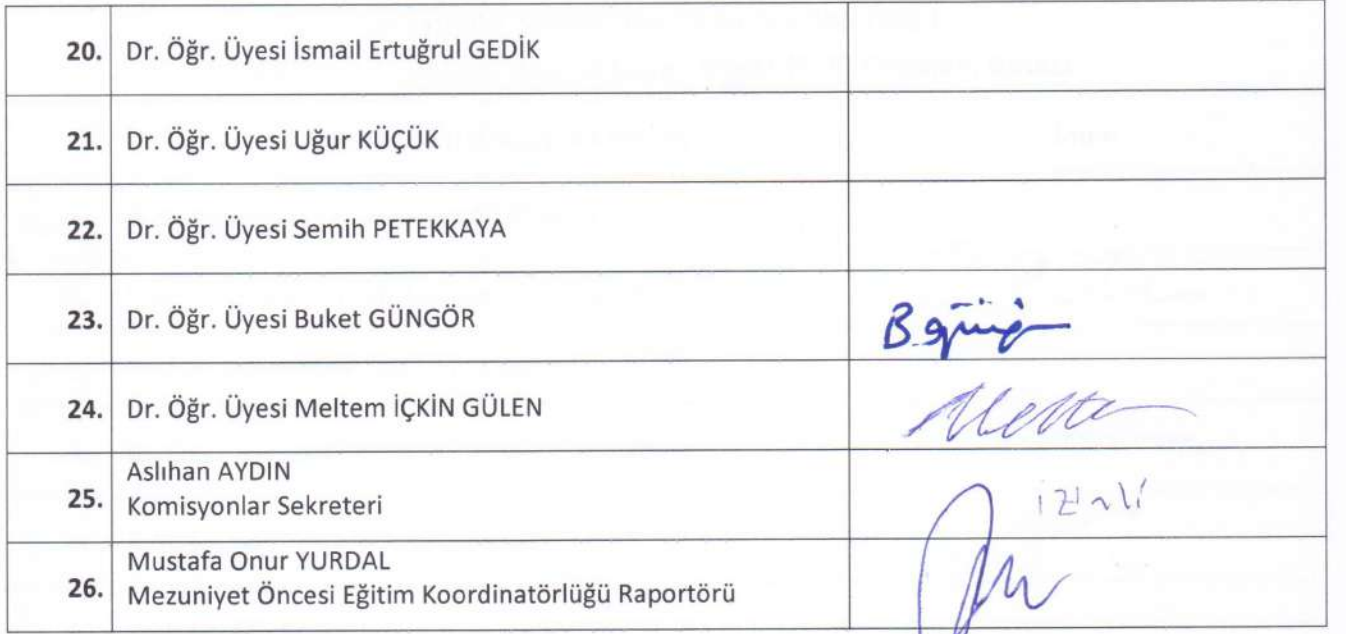 20. Dr. Öğr. Üyesi İsmail Ertuğrul GEDİK
21. Dr. Öğr. Üyesi Uğur KÜÇÜK
22. Dr. Öğr. Üyesi Semih PETEKKAYA
23. Dr. Öğr. Üyesi Buket GÜNGÖR
24. Dr. Öğr. Üyesi Meltem İÇKİN GÜLEN
Aslıhan AYDIN
25. Komisyonlar Sekreteri
izinli
Mustafa Onur YURDAL
26. Mezuniyet Öncesi Eğitim Koordinatörlüğü Raportörü